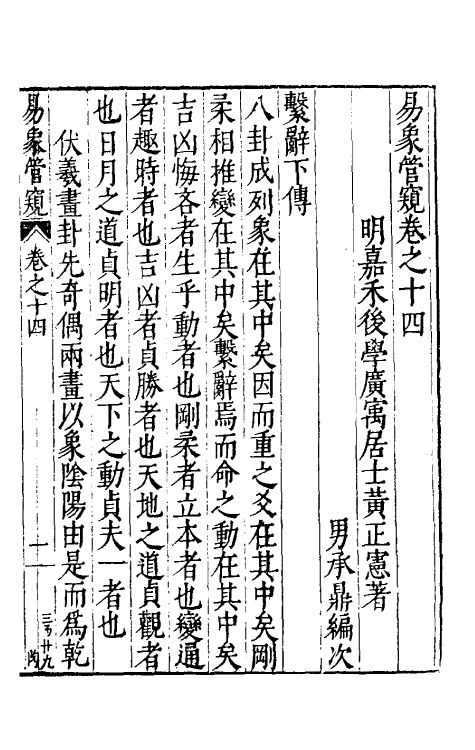 易象管窺卷之十四
明嘉禾後學廣寓居士黃正憲著
男承鼎編次
繫辭下傳
八卦成列象在其中矣因而重之爻在其中矣剛
柔相推變在其中矣繫辭焉而命之動在其中矣
吉凶悔吝者生乎動者也剛柔者立本者也變通
者趣時者也吉凶者貞勝者也天地之道貞觀者
也日月之道貞明者也天下之動貞夫一者也
伏羲畫卦先奇偶兩畫以象陰陽由是而爲乾
易象管窺 卷之十四 一